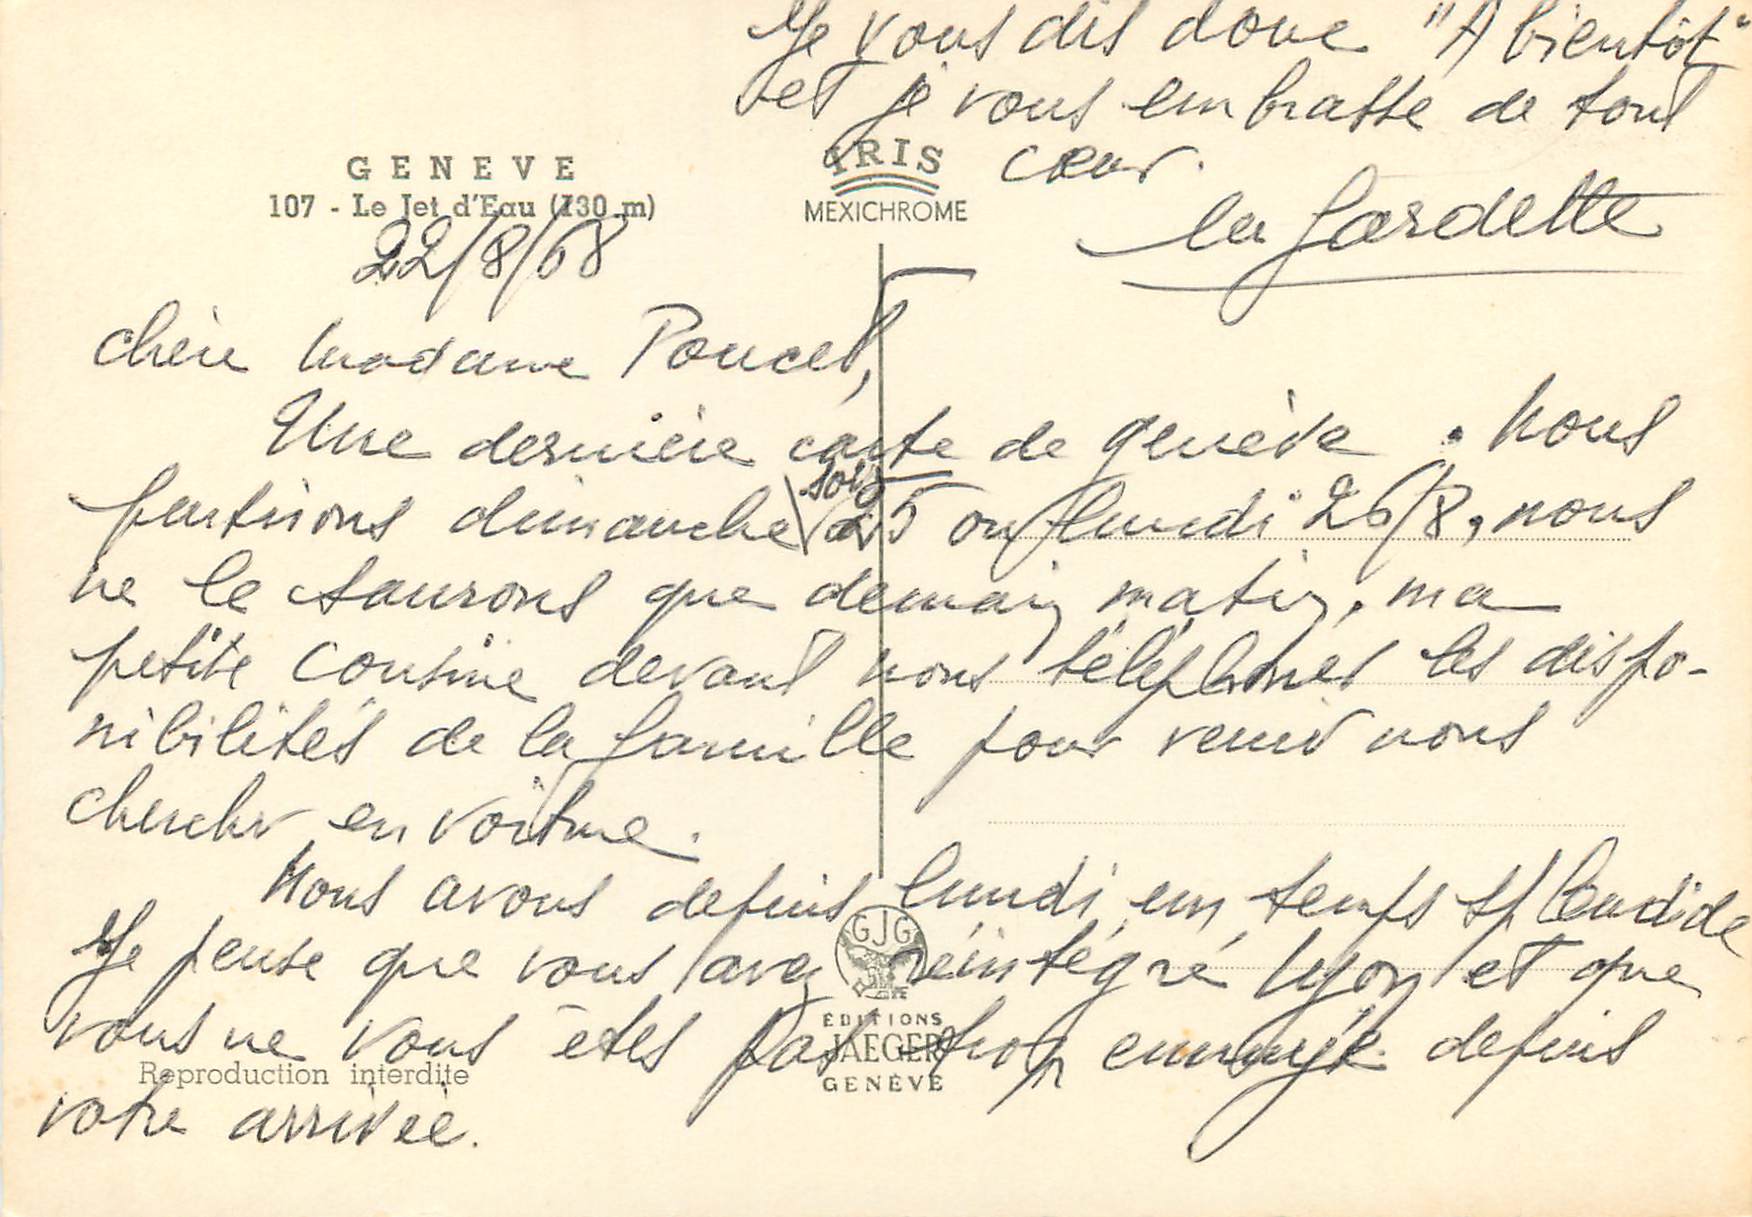 GENEVE
107 - Le Jet d'Eau (130 m)
IRIS
MEXICHROME
22/8/68
chère madame Poncet,
Une dernière carte de genève. Nous
partirons dimanche soir 25 ou lundi 26/8, nous
ne le saurons que demain matin, ma
petite cousine devant nous téléphoner les dispo-
nibilités de la famille pour venir nous
chercher en voiture.
Nous avons depuis lundi un temps splendide
Je pense que vous avez réintégré Lyon et que
vous ne vous êtes pas trop ennuyée depuis
votre arrivée.
Je vous dis donc "A bientôt"
et je vous embrasse de tout
cœur.
la Gardette
GJG
EDITIONS
JAEGER
GENÈVE
Reproduction interdite